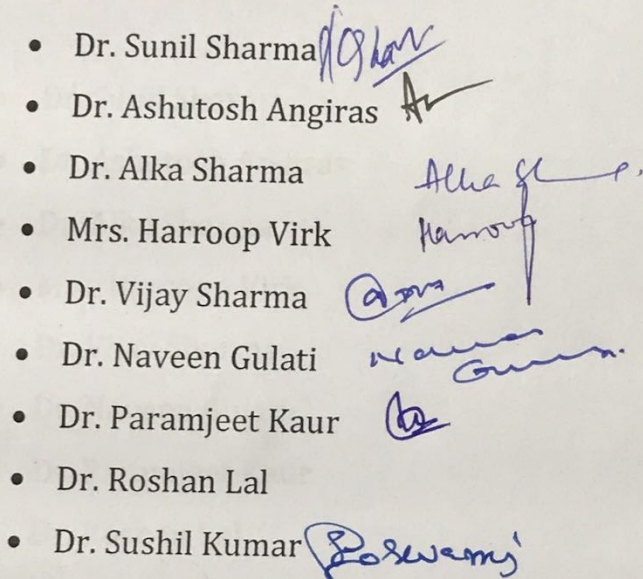 • Dr. Sunil Sharma
• Dr. Ashutosh Angiras
• Dr. Alka Sharma Alka
• Mrs. Harroop Virk Harroop
• Dr. Vijay Sharma
• Dr. Naveen Gulati Naveen
• Dr. Paramjeet Kaur
• Dr. Roshan Lal
• Dr. Sushil Kumar Goswami